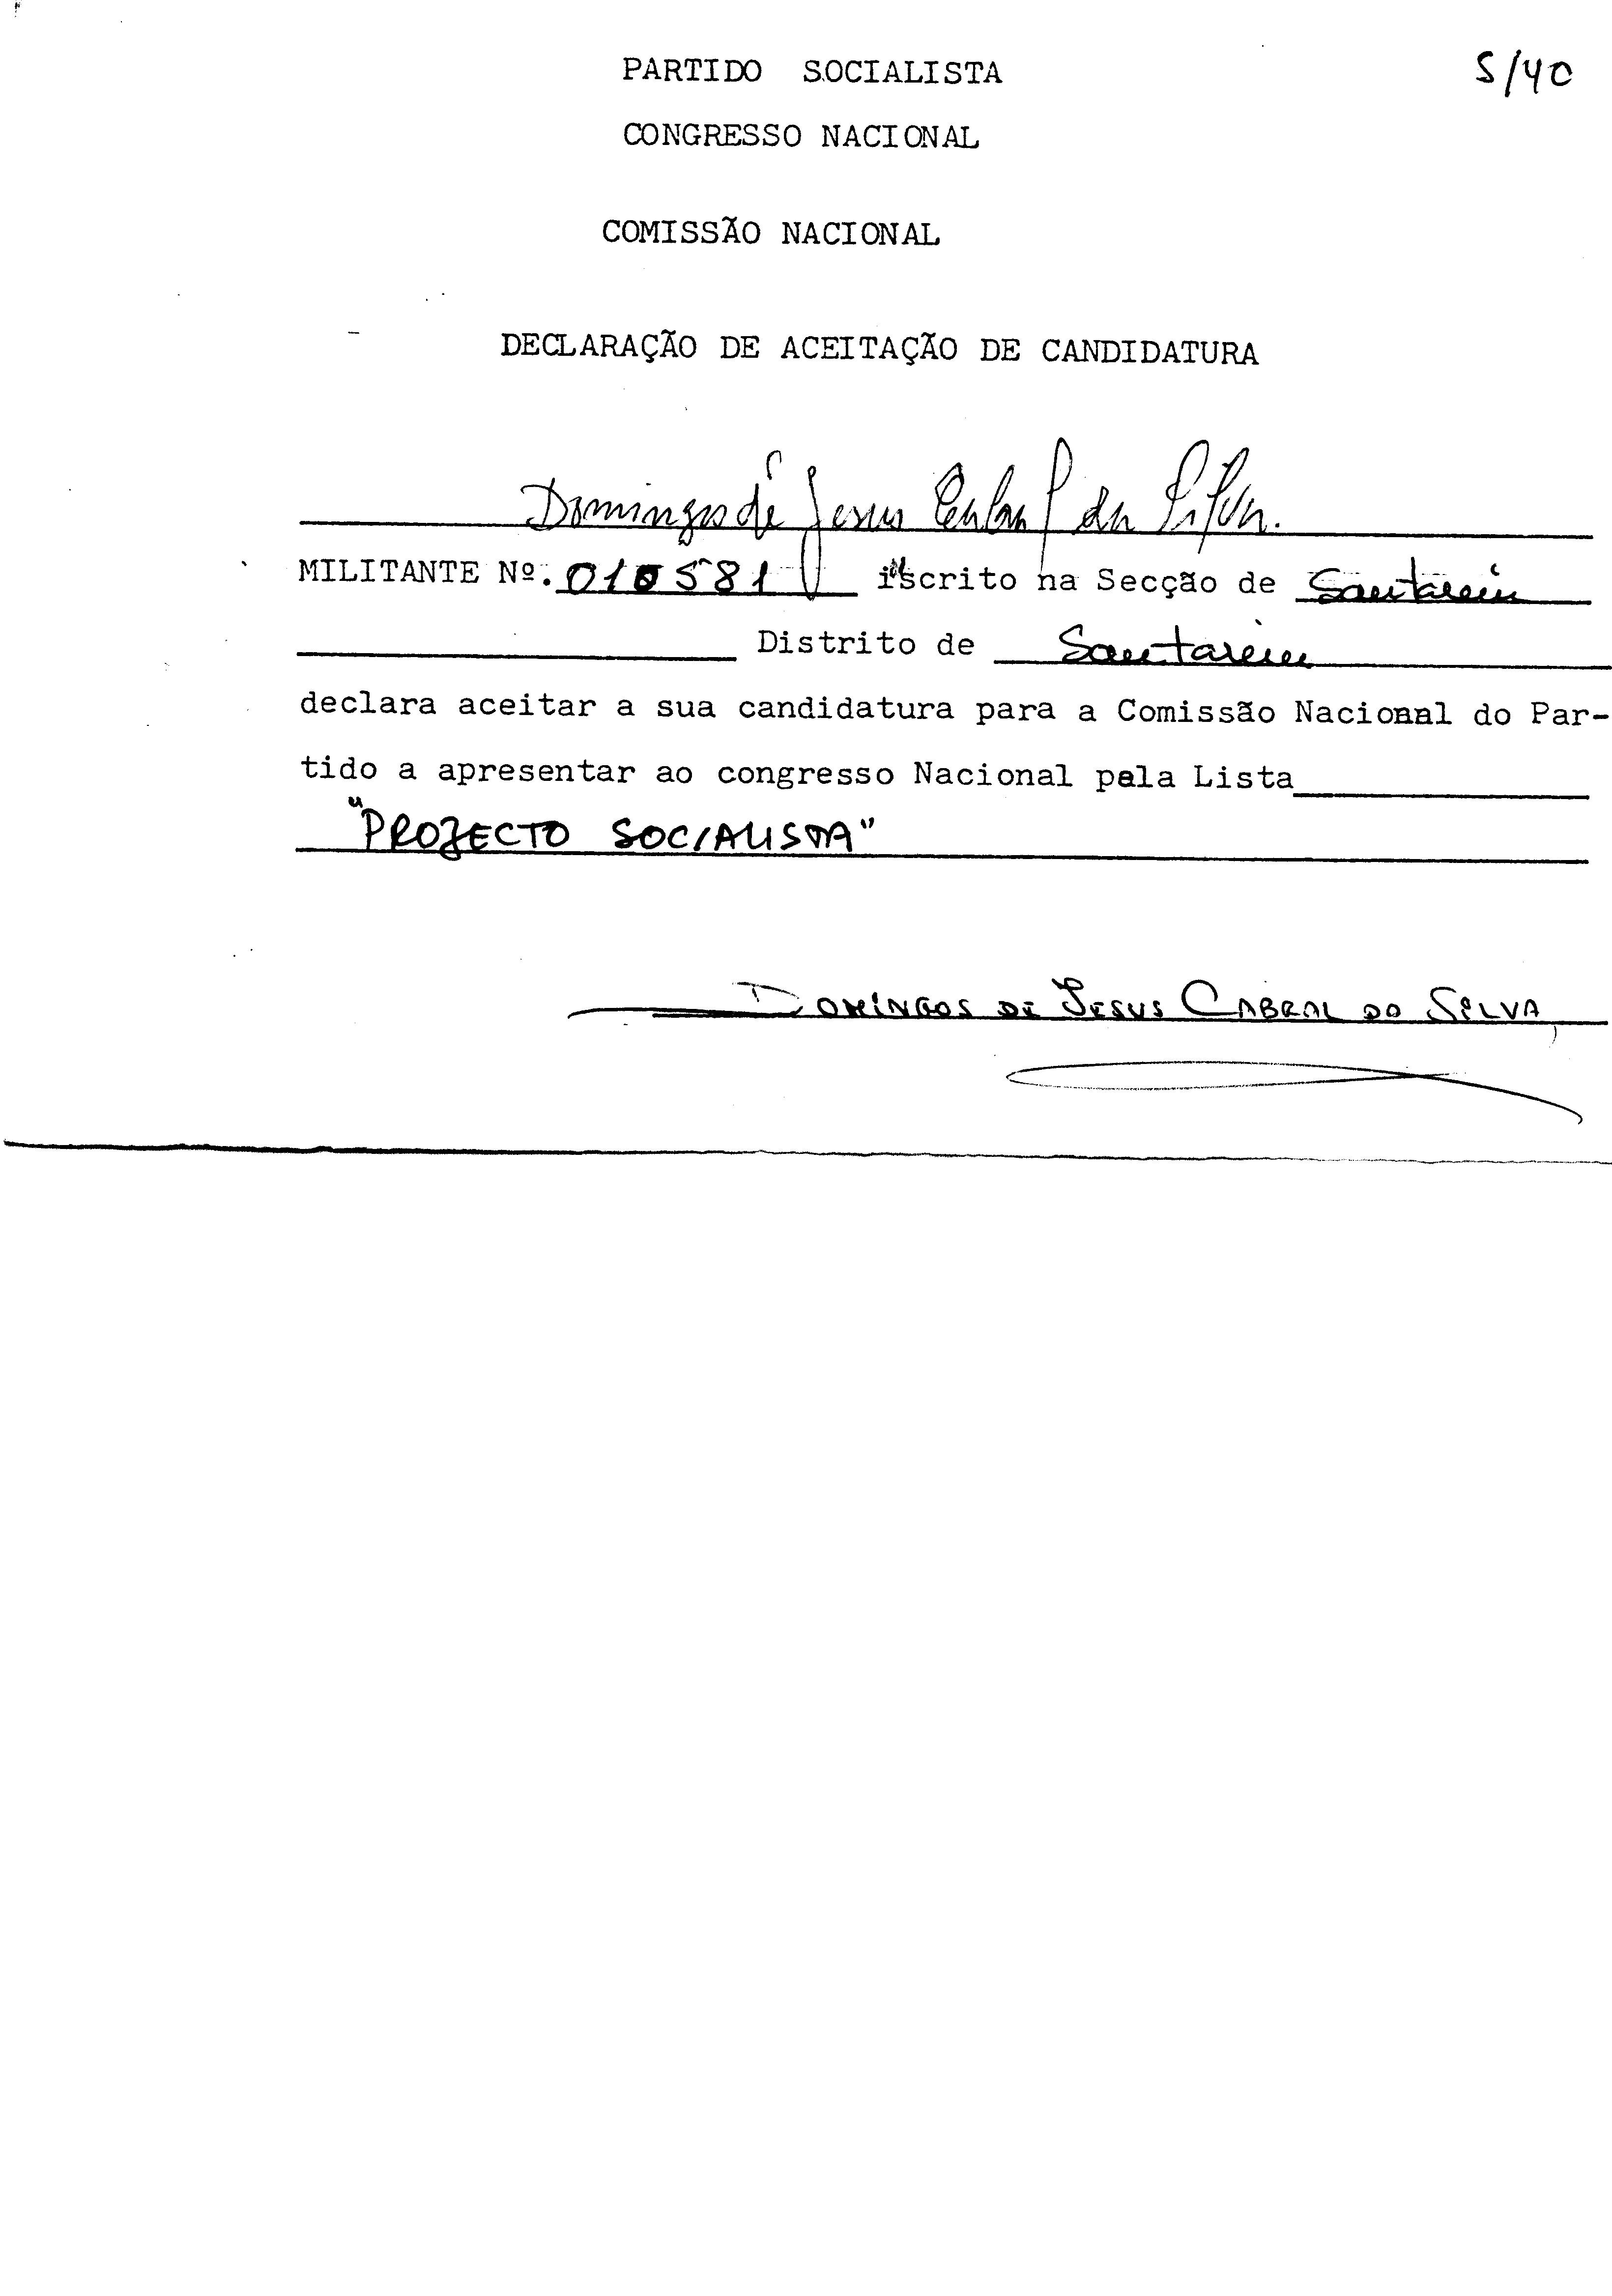 S/40
PARTIDO SOCIALISTA
CONGRESSO NACIONAL
COMISSÃO NACIONAL
DECLARAÇÃO DE ACEITAÇÃO DE CANDIDATURA
Domingos de Jesus Cabral da Silva.
MILITANTE Nº. 010581 inscrito na Secção de Santarém
Distrito de Santarém
declara aceitar a sua candidatura para a Comissão Nacional do Par-
tido a apresentar ao congresso Nacional pela Lista
"PROJECTO SOCIALISTA"
DOMINGOS DE JESUS CABRAL DA SILVA